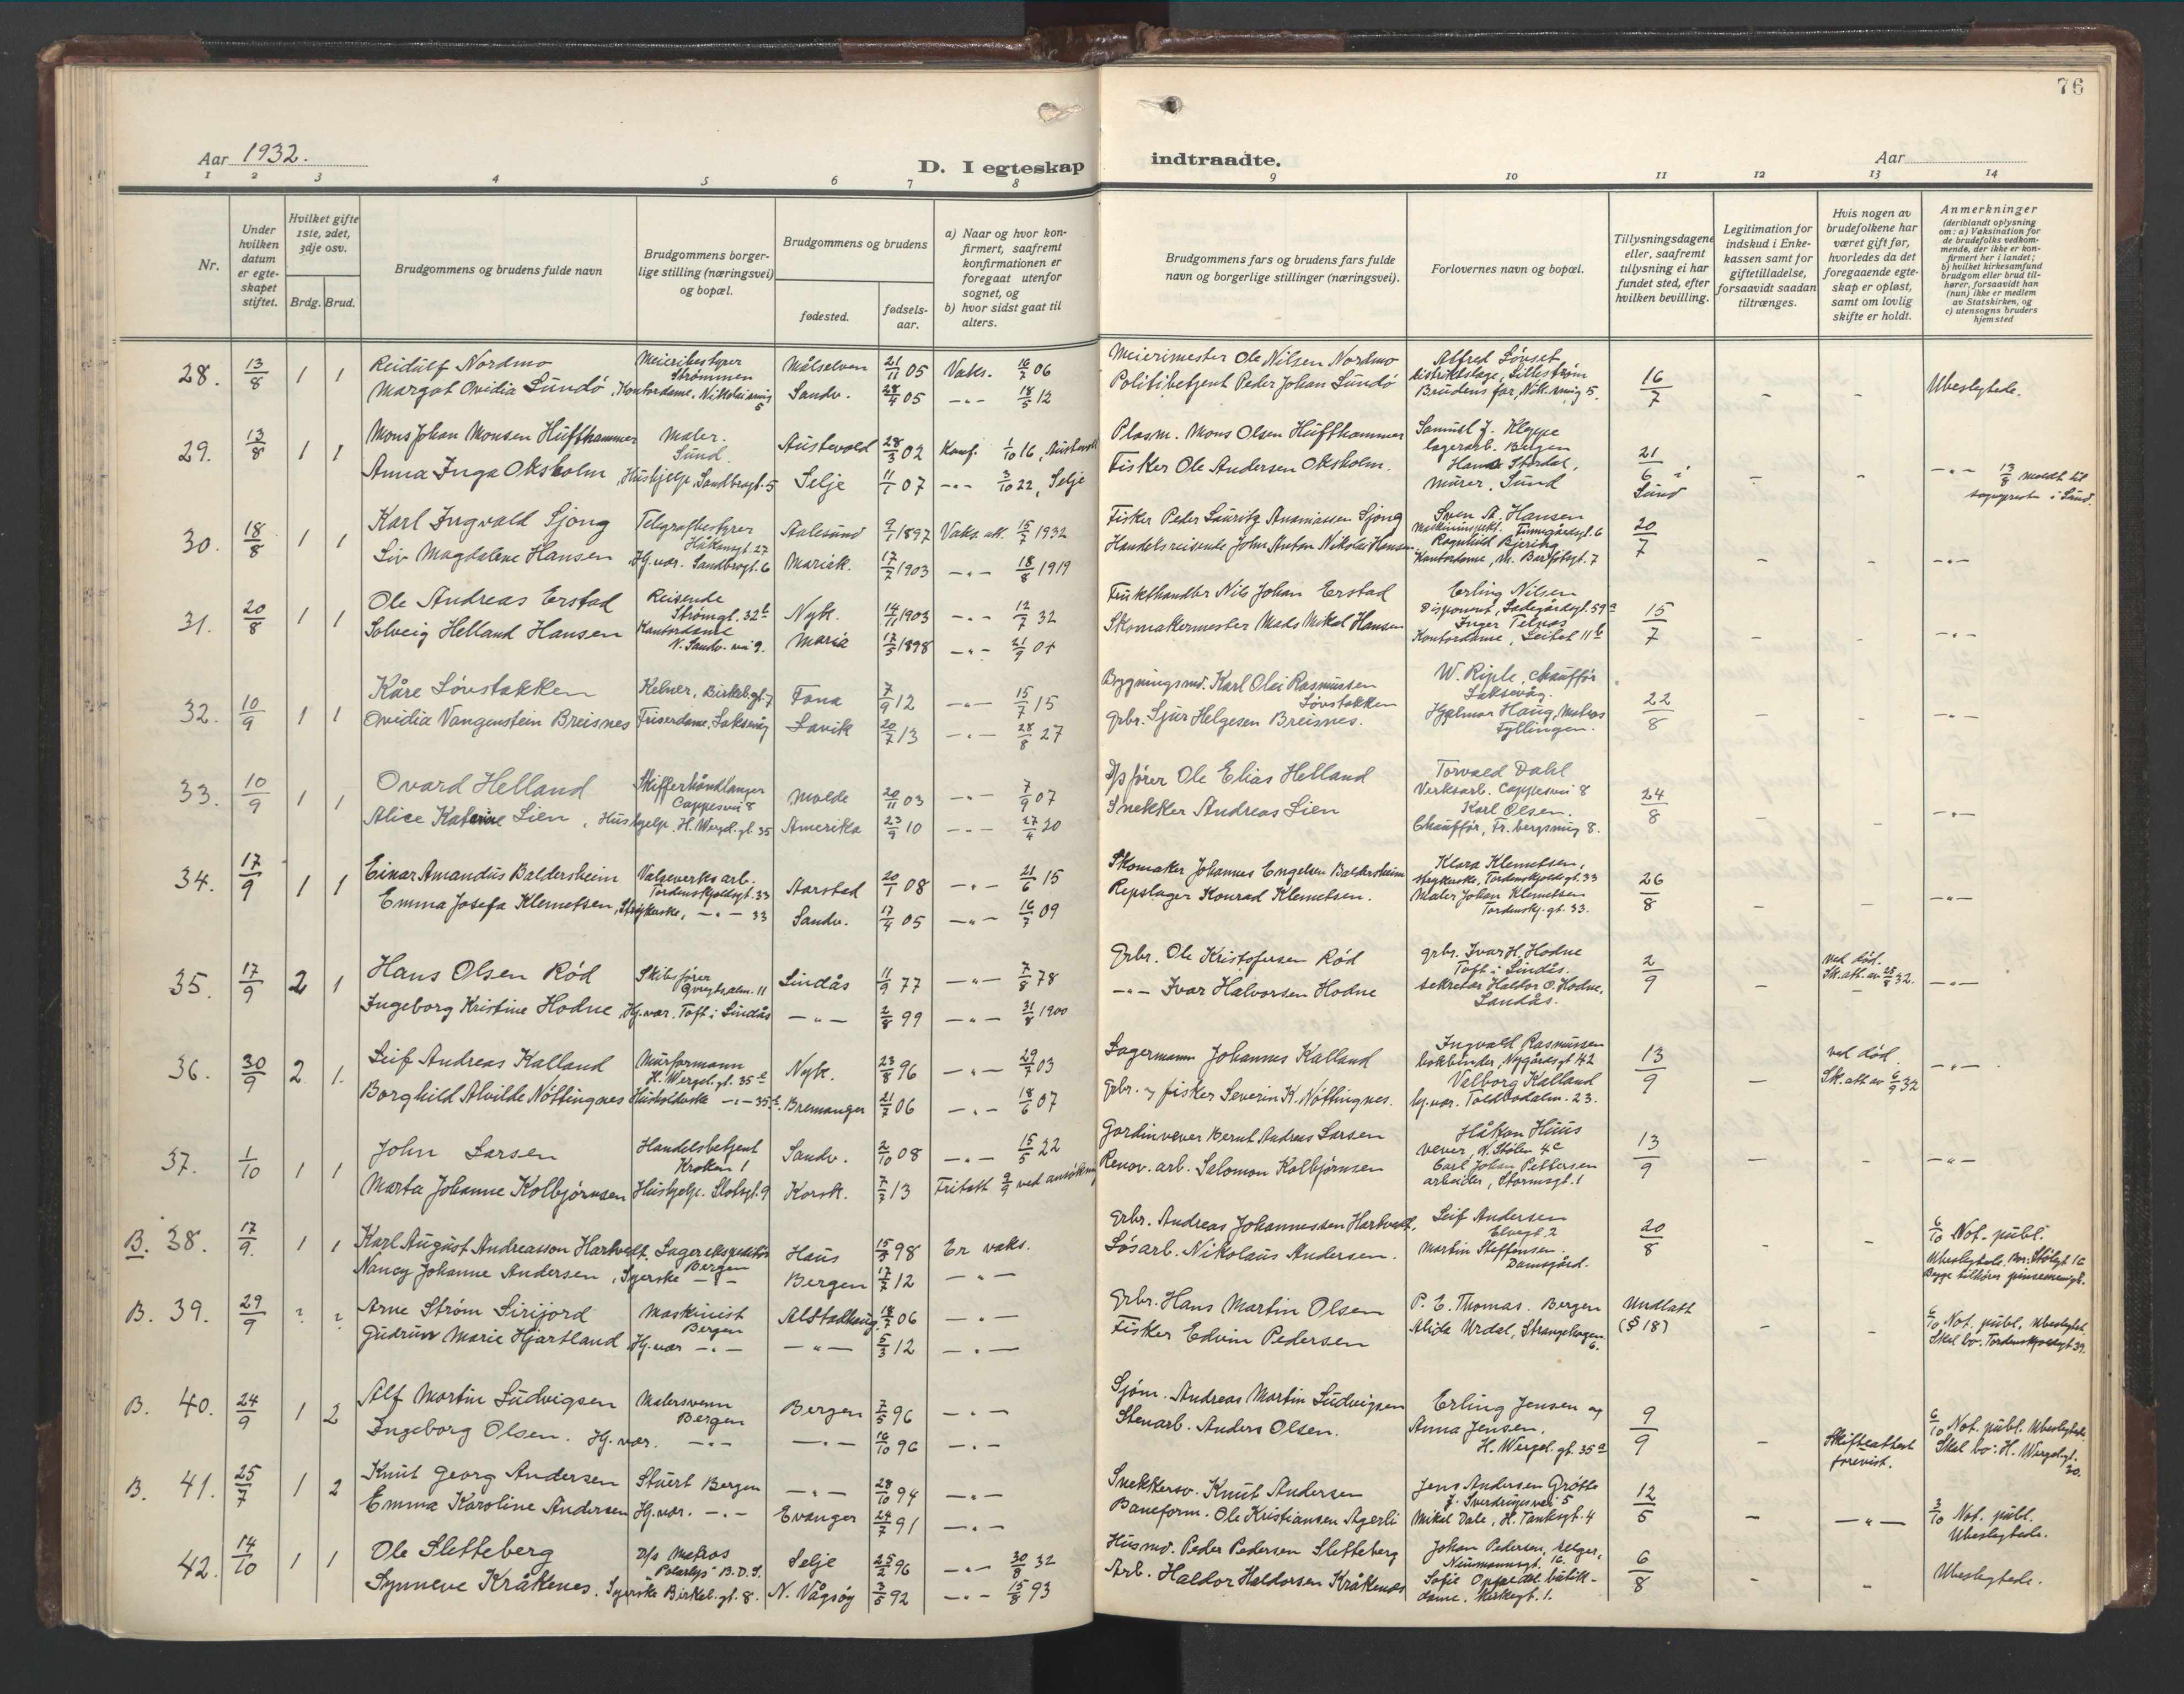 76
Aar 1932.
D. I egteskap indtraadte.
Aar
1 2 3 4 5 6 7 8 9 10 11 12 13 14
Nr.
Under hvilken datum er egteskapet stiftet.
Hvilket gifte 1ste, 2det, 3dje osv.
Brdg. Brud.
Brudgommens og brudens fulde navn
Brudgommens borgerlige stilling (næringsvei) og bopæl.
Brudgommens og brudens
fødested.
fødselsaar.
a) Naar og hvor konfirmert, saafremt konfirmationen er foregaat utenfor sognet, og
b) hvor sidst gaat til alters.
Brudgommens fars og brudens fars fulde navn og borgerlige stillinger (næringsvei).
Forlovernes navn og bopæl.
Tillysningsdagene eller, saafremt tillysning ei har fundet sted, efter hvilken bevilling.
Legitimation for indskud i Enkekassen samt for giftetilladelse, forsaavidt saadan tiltrænges.
Hvis nogen av brudefolkene har været gift før, hvorledes da det foregaaende egteskap er opløst, samt om lovlig skifte er holdt.
Anmerkninger
(deriblandt oplysning om: a) Vaksination for de brudefolks vedkommende, der ikke er konfirmert her i landet; b) hvilket kirkesamfund brudgom eller brud tilhører, forsaavidt han (hun) ikke er medlem av Statskirken, og c) utensogns bruders hjemsted
28. 13/8 1 1 Reidulf Nordmo Meieribestyrer Strømmen Målselven 21/11 05 Vaks. 16/7 06 Meierimester Ole Nilsen Nordmo Alfred Løvset, distriktslæge, Lillestrøm 16/7 - - Ubeslegtede.
Margot Ovidia Sundö, Kontordame, Nikolaismug 5 Sandv. 28/4 05 -"- 18/5 12 Politibetjent Peder Johan Sundö Brudens far, Nik.smug 5.
29. 13/8 1 1 Mons Johan Monsen Hufthammer Maler. Sund. Austevold 28/3 02 Konf. 1/10 16, Austevoll Plasm. Mons Olsen Hufthammer Samuel J. Kleppe lagerarb. Bergen 21/6 i Sund - - -"- 13/8 meldt til sogneprest i Sund.
Anna Inga Oksholm, Hushjelp, Sandbrogt. 5 Selje 11/1 07 -"- 3/10 22, Selje Fisker Ole Andersen Oksholm. Hans Stordal, murer. Sund
30. 18/8 1 1 Karl Ingvald Sjong Telegrafbestyrer Håkonsgt. 27 Aalesund 9/1 1897 Vaks. att. 15/7 1932 Fisker Peder Lauritz Ananiassen Sjong Sven A. Hansen Maskininspekt. Finnegårdsgt. 6 20/7 - - -"-
Liv Magdalene Hansen Hj.vær. Sandbrogt. 6 Mariak. 17/7 1903 -"- 18/8 1919 Handelsreisende John Anton Nikolai Hansen Ragnhild Bjering Kontordame, M. Barfotsgt. 7
31. 20/8 1 1 Ole Andreas Erstad Reisende Strømgt. 32b Nyk. 14/11 1903 -"- 12/7 32 Frukthandler Nils Johan Erstad Erling Nilsen Disponent, Ladegårdsgt. 59a 15/7 -"-
Solveig Helland Hansen Kontordame N. Sandv. vei 9. Maria 17/5 1898 -"- 21/9 04 Skomakermester Mads Mikal Hansen Inger Telnes Kontordame, Leitet 11b
32. 10/9 1 1 Kåre Løvstakken Kelner, Birkeb.gt. 7 Fana 7/9 12 -"- 15/7 15 Bygningsmd. Karl Olai Rasmussen Løvstakken W. Riple, chauffør Laksevåg. 22/8 - - -"-
Ovidia Vangenstein Breisnes Friserdame, Laksevåg Lavik 20/7 13 -"- 28/8 27 Grbr. Sjur Helgesen Breisnes. Hjalmar Haug, Matros Fyllingen.
33. 10/9 1 1 Ovard Helland Skifferhåndlanger Cappesvei 8 Molde 20/11 03 -"- 7/9 07 D/s fører Ole Elias Helland Torvald Dahl Verksarb. Cappesvei 8 24/8 - - -"-
Alice Katrine Lien, Hushjelp. H. Wergel. gt. 35 Amerika 23/9 10 -"- 27/4 20 Snekker Andreas Lien Karl Olsen. Chauffør, Fr. bergsmug 8.
34. 17/9 1 1 Einar Amandus Baldersheim Valseverksarb. Tordenskjoldsgt. 33 Aarstad 20/1 08 -"- 21/6 15 Skomaker Johannes Engelsen Baldersheim Klara Klemetsen, strykerske, Tordenskjoldsgt. 33 26/8 - - -"-
Emma Josefa Klemetsen, Strykerske, -"- 33 Sandv. 17/4 05 -"- 16/7 09 Repslager Konrad Klemetsen. Maler Johan Klemetsen Tordenskj.gt. 33.
35. 17/9 2 1 Hans Olsen Rød Skibsfører Lindås 11/9 77 -"- 7/8 78 Grbr. Ole Kristofersen Rød grbr. Ivar H. Hodne Toft i Lindås. 2/9 - ved død. Sk.att. av 25/8 32. -"-
Ingeborg Kristine Hodne Hj.vær. Toft i Lindås -"- 2/8 99 -"- 21/8 1900 -"- Ivar Halvorsen Hodne sekretær Haldor O. Hodne, Landås.
36. 30/9 2. 1. Leif Andreas Kalland Murformann H. Wergel.gt. 35e Nyk. 23/8 96 -"- 29/7 03 Lagermann Johannes Kalland Ingvald Rasmussen bokbinder, Nygårdsgt 42 13/9 - ved død Sk.att av 6/9 32 -"-
Borghild Alvilde Nöttingnes Husholderske -"- 35e. Bremanger 21/7 06 -"- 18/6 07 Grbr. og fisker Severin K. Nöttingnes. Valborg Kalland hj.vær. Toldbodalm. 23.
37. 1/10 1 1 John Larsen Handelsbetjent Kroken 1 Sandv. 2/10 08 -"- 15/5 22 Gardinvever Bernt Andreas Larsen Håkon Huus vever, N. Stølen 4c 13/9 - - -"-
Marta Johanne Kolbjørnsen Hushjelp. Slotsgt. 9 Korsk. 7/7 13 Fritatt 9/9 ved ansökning Renov. arb. Salomon Kolbjörnsen Carl Johan Pettersen arbeider, Stormsgt. 1
B. 38. 17/9. 1 1 Karl August Andreasson Hartvedt. Lagerekspeditør Bergen Haus 15/9 98 Er vaks. Grbr. Andreas Johannessen Hartvedt, Leif Andersen Elvegt. 2 20/8 - - 6/10 Not. publ.
Nancy Johanne Andersen, Syerske -"- Bergen 17/7 12 -"- Løsarb. Nikolaus Andersen. Martin Steffensen. Damsgård. Ubeslegtede, M. Stølegt 16 Begge tilhører pinsemenigh.
B. 39. 29/9 ? ? Arne Strøm Sirijord Maskinist Bergen Alstadhaug 18/7 06 -"- Grbr. Hans Martin Olsen P. E. Thomas. Bergen Undlatt (§ 18) - - 6/10 Not. publ. Ubeslegted.
Gudrun Marie Hjartland Hj.vær -"- -"- 5/3 12 -"- Fisker Edvin Pedersen Alida Urdal, Strangehagen 6. Skal bo. Tordenskjoldsgt 39.
B. 40. 24/9 1 2 Alf Martin Ludvigsen Malersvenn Bergen Bergen 7/5 96 -"- Sjøm. Andreas Martin Ludvigsen Erling Jensen og 9/9 - Skifteattest forevist. 6/10 Not. publ. Ubeslegtede.
Ingeborg Olsen. Hj.vær. -"- -"- 16/10 96 -"- Stenarb. Anders Olsen. Anna Jensen, H. Wergel.gt. 35a Skal bo: H. Wergel.gt. 30.
B. 41. 25/7 1 2 Knut Georg Andersen Stuert Bergen -"- 28/10 94 -"- Snekkersv. Knut Andersen Jens Andersen Grøtte J. Sverdrupsvei 5 12/5 - -"- 3/10 Not. publ. Ubeslegtede.
Emma Karoline Andersen Hj.vær. -"- Evanger 24/7 91 -"- Baneform. Ole Kristiansen Agerli Mikal Dale, H. Tanksgt. 4
42. 14/10 1 1 Ole Sletteberg D/s Matros "Polarlys" B.D.S. Selje 25/2 96 -"- 30/8 32 Husmd. Peder Pedersen Sletteberg Johan Pedersen, selger, Neumannsgt. 16. 6/8 - - Ubeslegtede.
Synneve Kråkenes. Syerske Birkeb.gt. 8. N. Vågsøy 3/5 92 -"- 15/8 93 Arb. Haldor Haldorsen Kråkenes Sofie Oppedal butikdame. Kirkegt. 1.